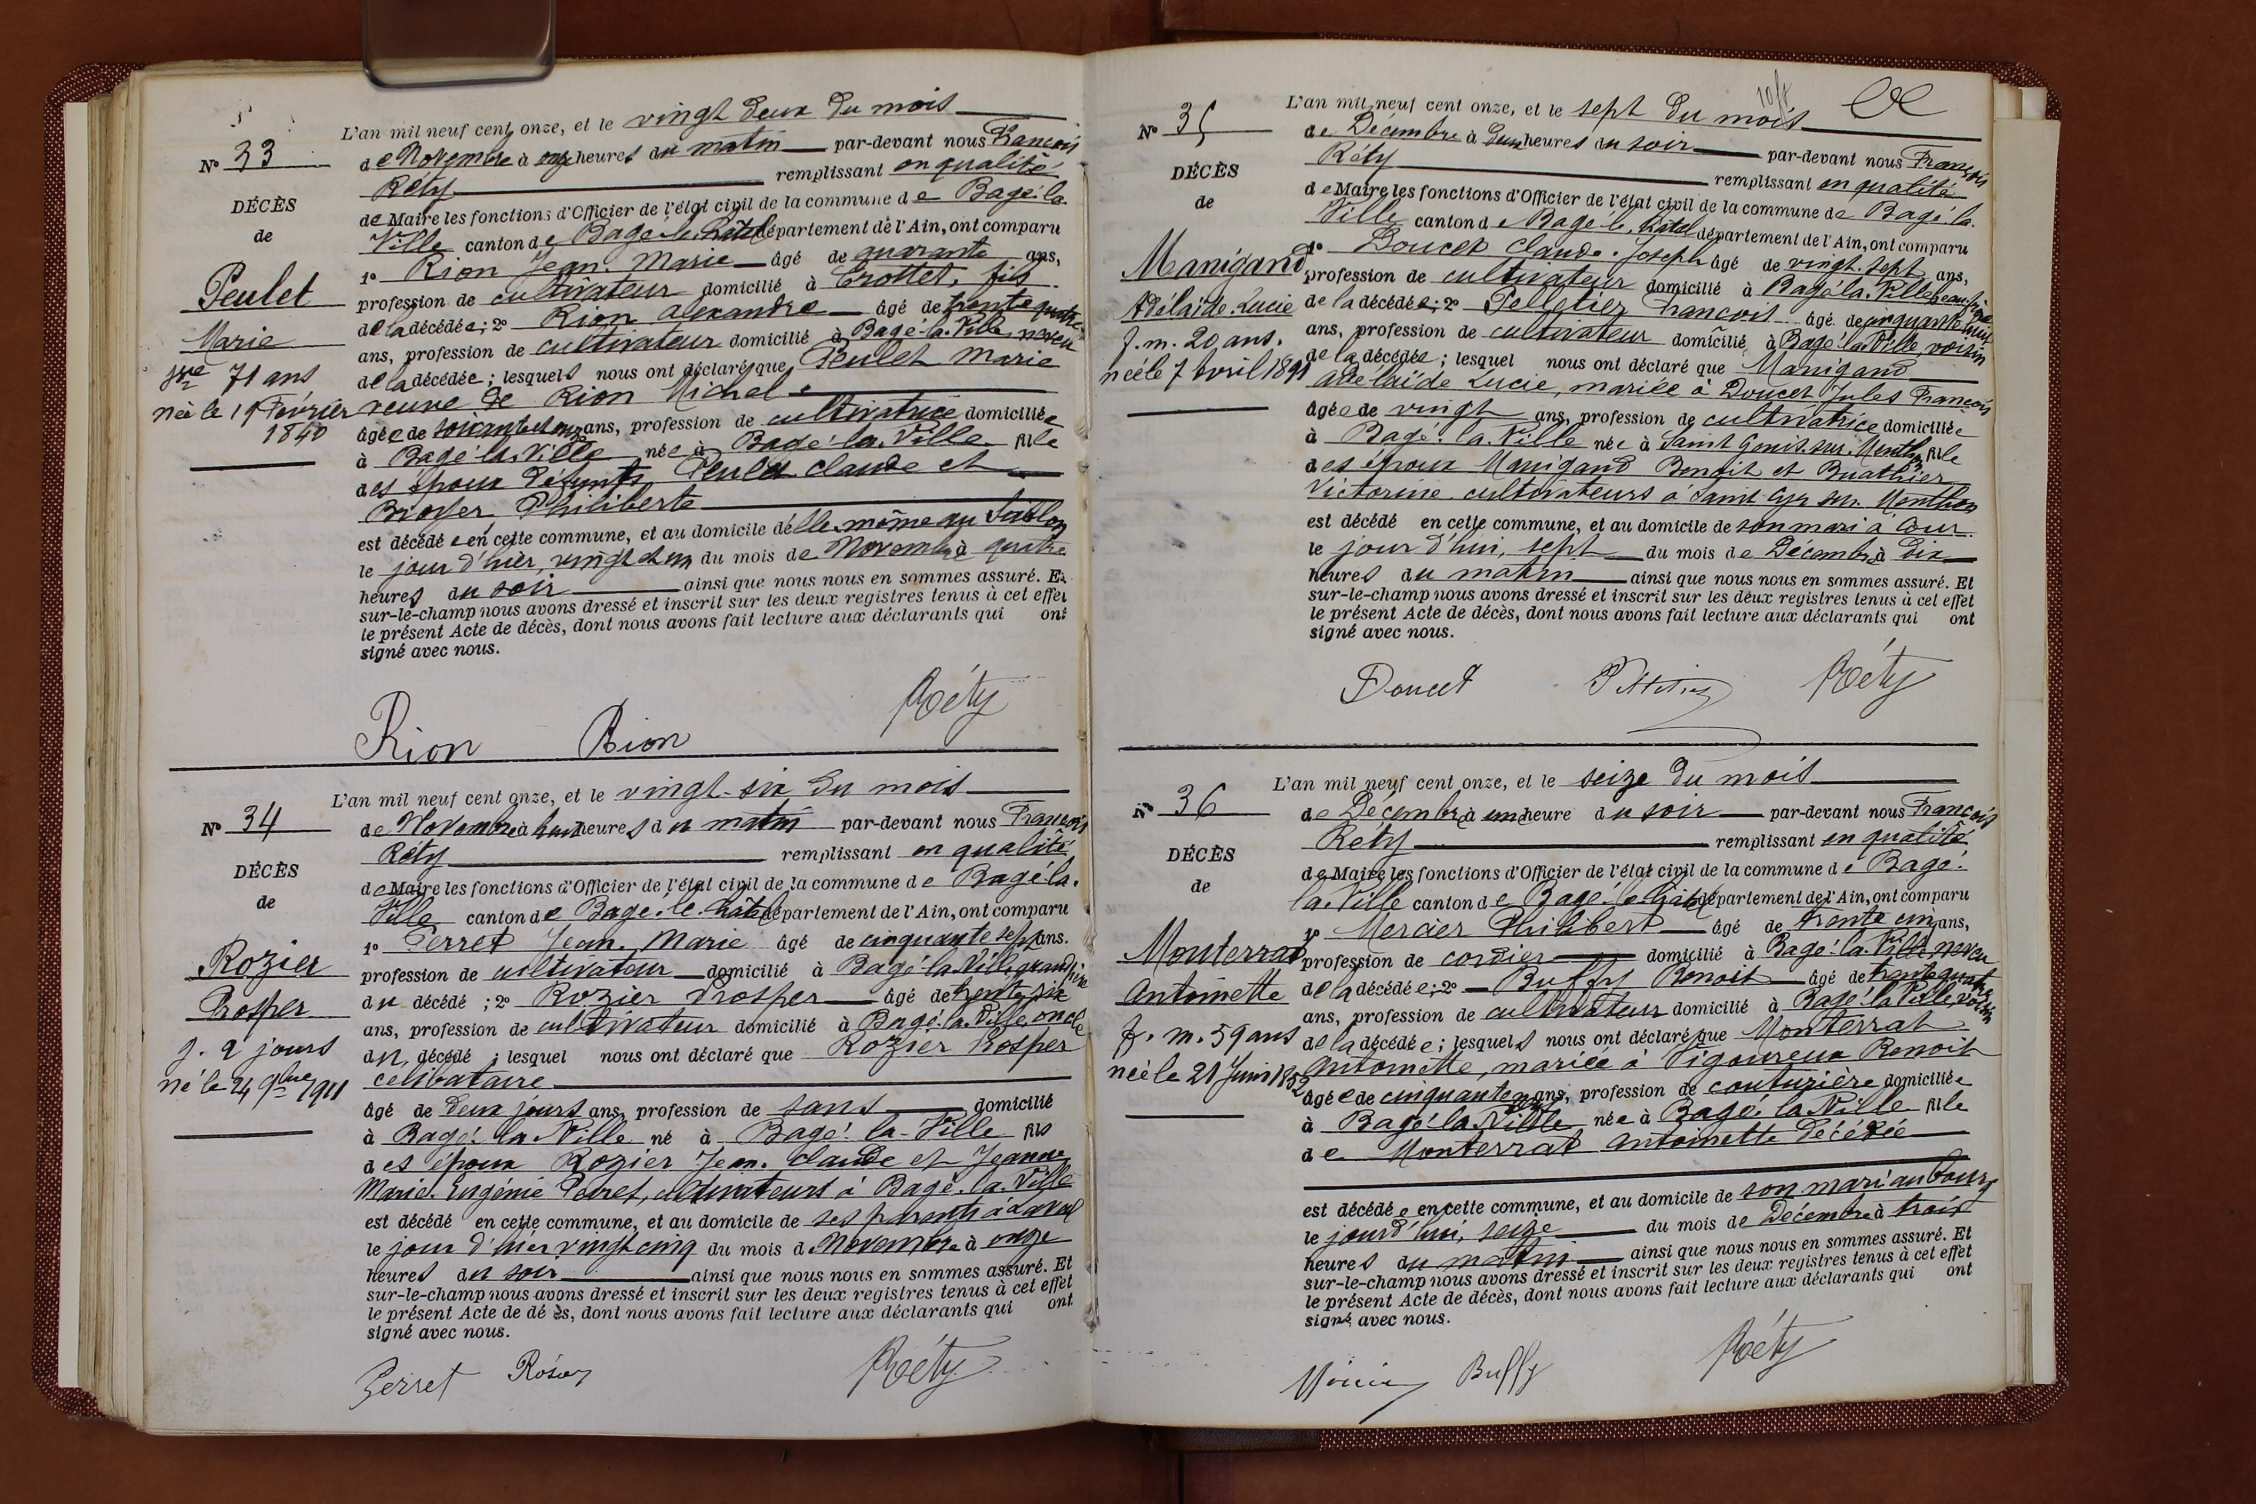 N° 33
DÉCÈS
de
Peulet
Marie
vve 71 ans
née le 19 Février
1840
L'an mil neuf cent onze, et le vingt deux du mois
de Novembre à onze heures du matin par-devant nous François
Réty remplissant en qualité
de Maire les fonctions d'Officier de l'état civil de la commune de Bagé-la-
Ville canton de Bagé-le-Châtel département de l'Ain, ont comparu
1° Rion Jean-Marie âgé de quarante ans,
profession de cultivateur domicilié à Crottet, fils
de la décédée; 2° Rion Alexandre âgé de trente quatre
ans, profession de cultivateur domicilié à Bagé-la-Ville, neveu
de la décédée; lesquels nous ont déclaré que Peulet Marie
veuve de Rion Michel
âgée de soixante et onze ans, profession de cultivatrice domiciliée
à Bagé-la-Ville née à Bagé-la-Ville fille
des époux défunts Peulet Claude et
Broyer Philiberte
est décédée en cette commune, et au domicile d'elle-même au Sablon
le jour d'hier, vingt et un du mois de Novembre à quatre
heures du soir ainsi que nous nous en sommes assuré. Et
sur-le-champ nous avons dressé et inscrit sur les deux registres tenus à cet effet
le présent Acte de décès, dont nous avons fait lecture aux déclarants qui ont
signé avec nous.
Rion Rion Réty
N° 34
DÉCÈS
de
Rozier
Prosper
g. 2 jours
né le 24 9bre 1911
L'an mil neuf cent onze, et le vingt-six du mois
de Novembre à huit heures du matin par-devant nous François
Réty remplissant en qualité
de Maire les fonctions d'Officier de l'état civil de la commune de Bagé-la-
Ville canton de Bagé-le-Châtel département de l'Ain, ont comparu
1° Perret Jean-Marie âgé de cinquante sept ans.
profession de cultivateur domicilié à Bagé-la-Ville, grand père
du décédé; 2° Rozier Prosper âgé de trente six
ans, profession de cultivateur domicilié à Bagé-la-Ville, oncle
du décédé; lesquel nous ont déclaré que Rozier Prosper
célibataire
âgé de deux jours ans, profession de sans domicilié
à Bagé-la-Ville né à Bagé-la-Ville fils
des époux Rozier Jean-Claude et Jeanne
Marie-Eugénie Perret, cultivateurs à Bagé-la-Ville
est décédé en cette commune, et au domicile de ses parents à Laval
le jour d'hier vingt cinq du mois de Novembre à onze
heures du soir ainsi que nous nous en sommes assuré. Et
sur-le-champ nous avons dressé et inscrit sur les deux registres tenus à cet effet
le présent Acte de dé ès, dont nous avons fait lecture aux déclarants qui ont
signé avec nous.
Perret Rozier Réty
N° 35
DÉCÈS
de
Manigand
Adélaïde-Lucie
f. m. 20 ans.
née le 7 Avril 1891
L'an mil neuf cent onze, et le sept du mois
de Décembre à deux heures du soir par-devant nous François
Réty remplissant en qualité
de Maire les fonctions d'Officier de l'état civil de la commune de Bagé-la-
Ville canton de Bagé-le-Châtel département de l'Ain, ont comparu
1° Doucet Claude-Joseph âgé de vingt-sept ans,
profession de cultivateur domicilié à Bagé-la-Ville, beau-frère
de la décédée; 2° Pelletier François âgé de cinquante huit
ans, profession de cultivateur domicilié à Bagé-la-Ville, voisin
de la décédée; lesquel nous ont déclaré que Manigand
Adélaïde Lucie, mariée à Doucet Jules François
âgée de vingt ans, profession de cultivatrice domiciliée
à Bagé-la-Ville née à Saint Genis-sur-Menthon fille
des époux Manigand Benoit et Buathier
Victorine cultivateurs à Saint Cyr sur Menthon
est décédé en cette commune, et au domicile de son mari à Cour
le jour d'hui, sept du mois de Décembre à dix
heures du matin ainsi que nous nous en sommes assuré. Et
sur-le-champ nous avons dressé et inscrit sur les deux registres tenus à cet effet
le présent Acte de décès, dont nous avons fait lecture aux déclarants qui ont
signé avec nous.
Doucet Pelletier Réty
N° 36
DÉCÈS
de
Monterrat
Antoinette
f. m. 59 ans
née le 21 Juin 1852
L'an mil neuf cent onze, et le seize du mois
de Décembre à une heure du soir par-devant nous François
Réty remplissant en qualité
de Maire les fonctions d'Officier de l'état civil de la commune de Bagé-
la-Ville canton de Bagé-le-Châtel département de l'Ain, ont comparu
1° Mercier Philibert âgé de trente cinq ans,
profession de cordier domicilié à Bagé-la-Ville, neveu
de la décédée; 2° Buffy Benoit âgé de trente quatre
ans, profession de cultivateur domicilié à Bagé-la-Ville, voisin
de la décédée; lesquels nous ont déclaré que Monterrat
Antoinette, mariée à Vigoureux Benoit
âgée de cinquante neuf ans, profession de couturière domiciliée
à Bagé-la-Ville née à Bagé-la-Ville fille
de Monterrat Antoinette décédée
est décédée en cette commune, et au domicile de son mari au bourg
le jourd'hui, seize du mois de Décembre à trois
heures du matin ainsi que nous nous en sommes assuré. Et
sur-le-champ nous avons dressé et inscrit sur les deux registres tenus à cet effet
le présent Acte de décès, dont nous avons fait lecture aux déclarants qui ont
signé avec nous.
Buffy Réty